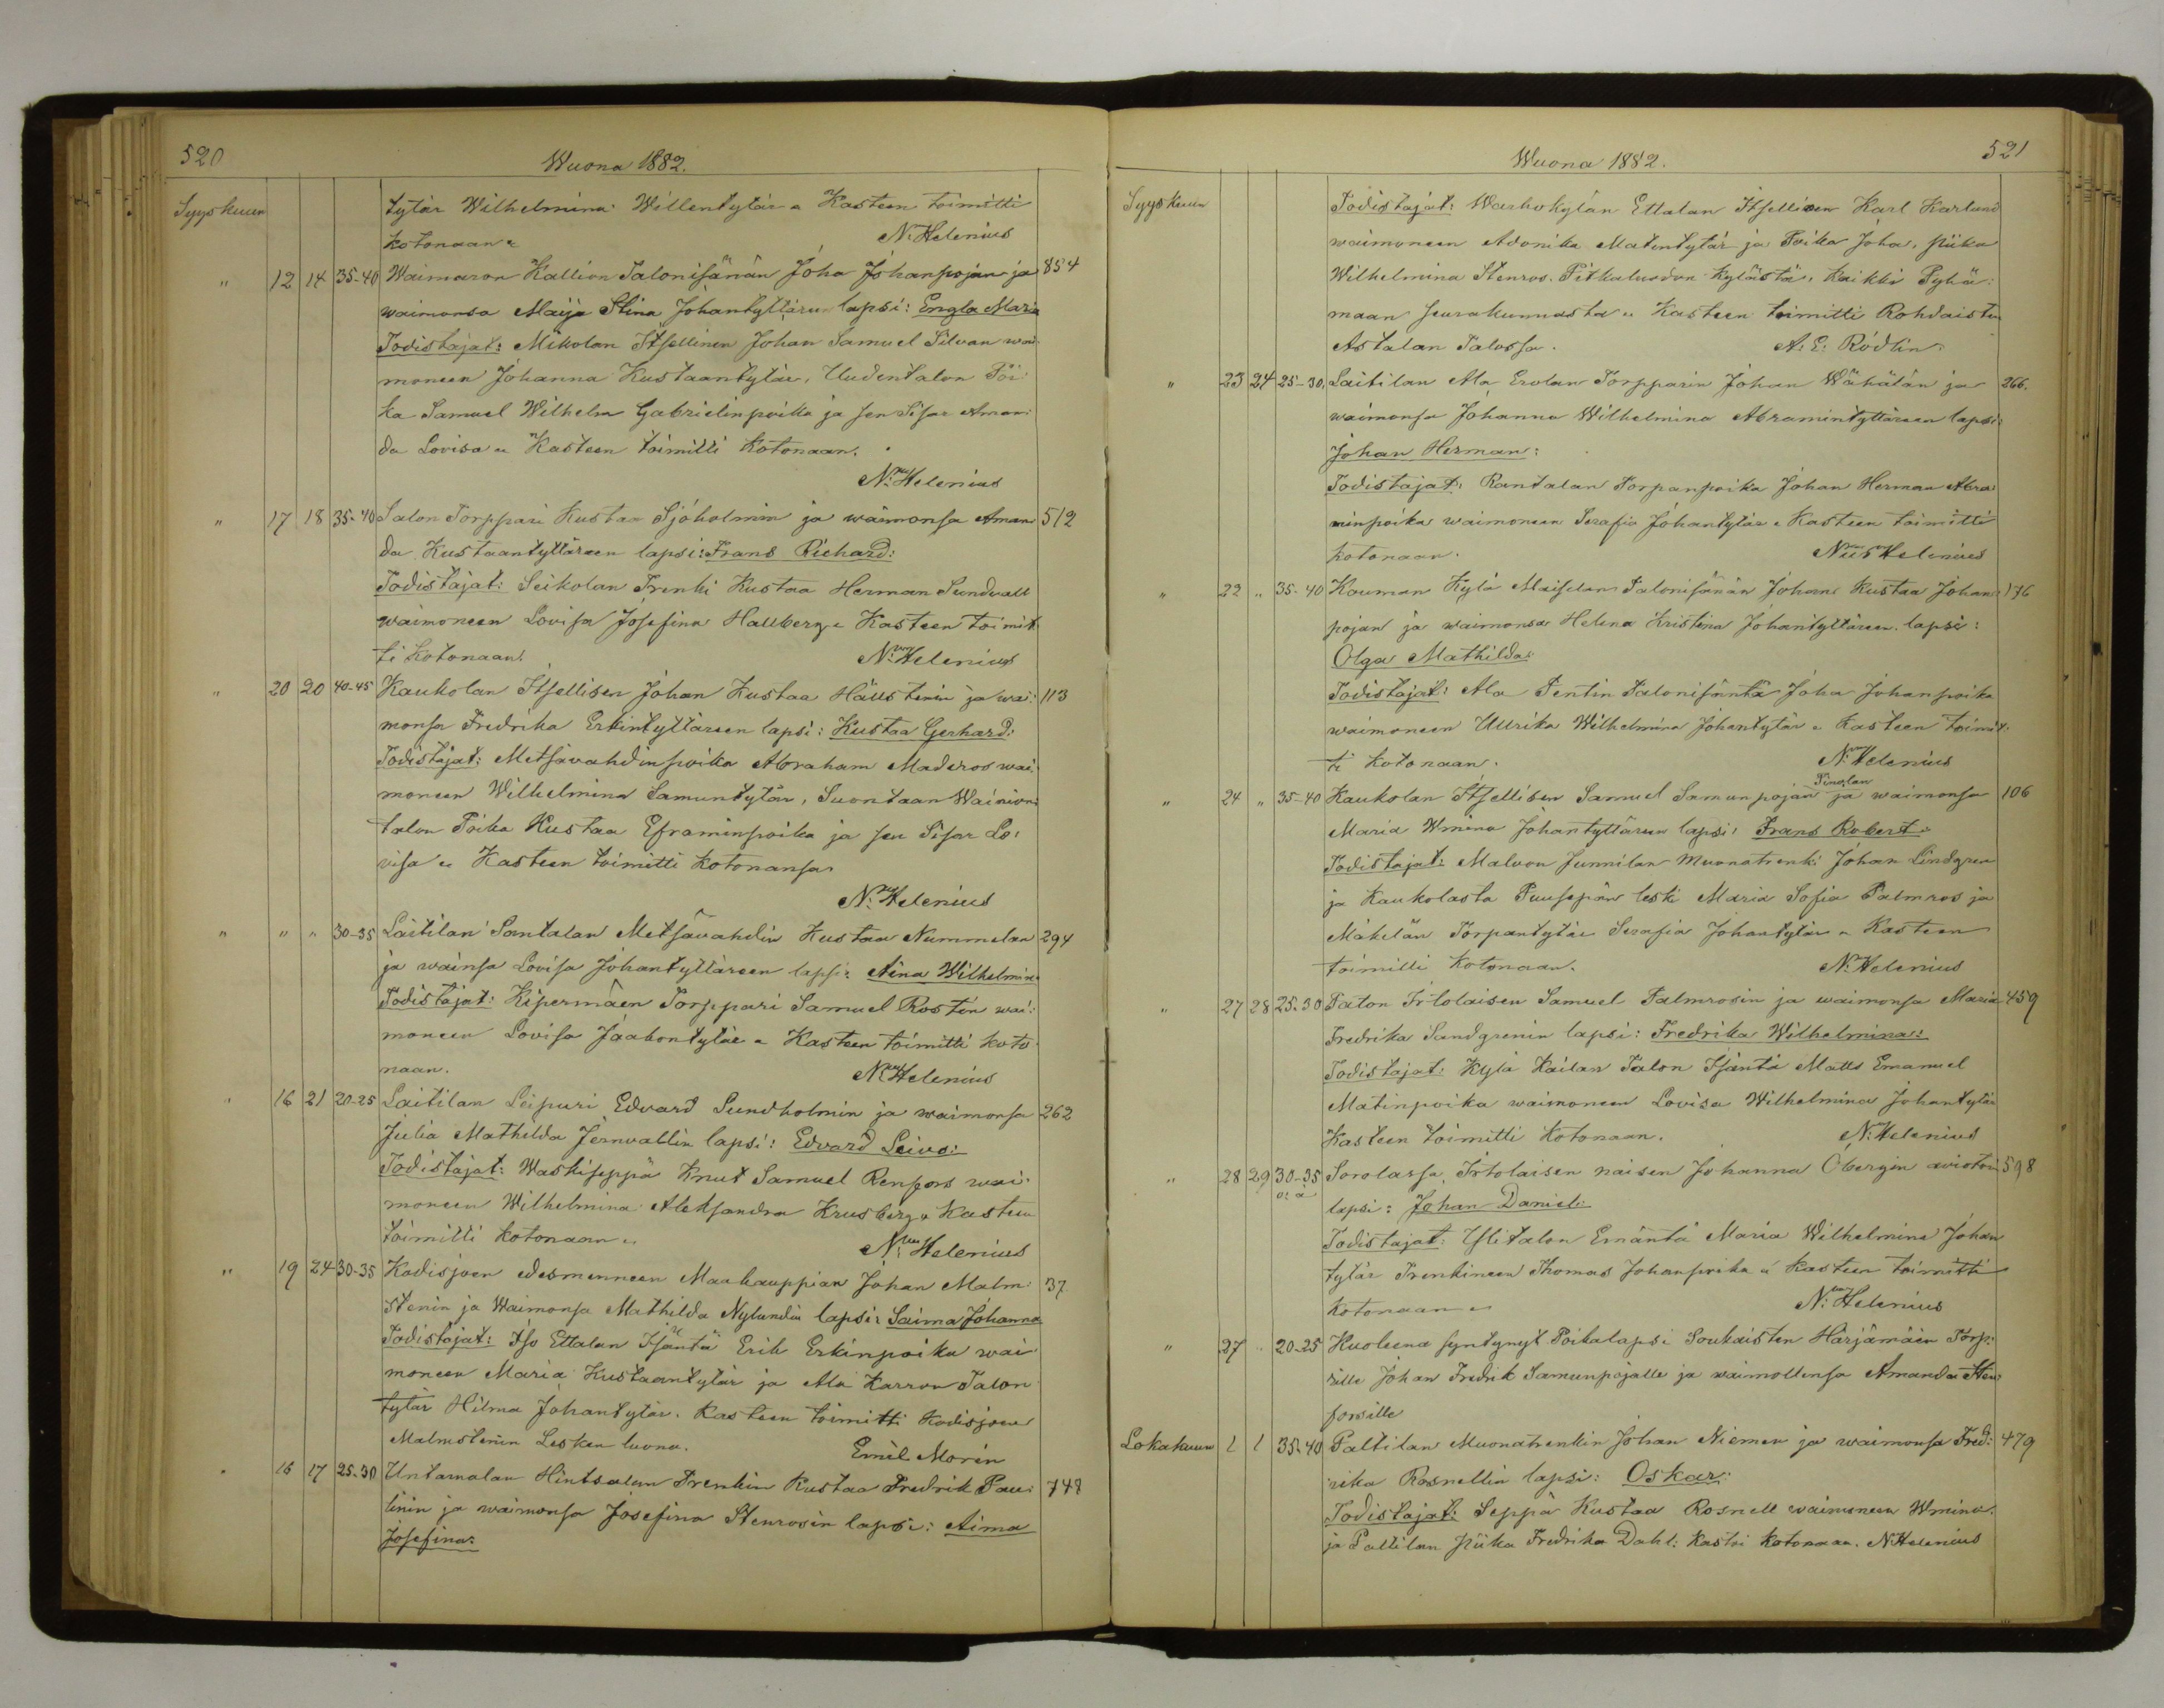 520
Wuona 1882.
Syyskuun tytär Wilhelmina Willentytär „ Kasteen toimitti
kotonaan „ N. Helenius
„ 12 14 35-40 Waimaron Kallion Talonisänän Joha Johanpojan ja 854
waimonsa Maija Stina Johantyttären lapsi: Engla Maria
Todistajat: Mikolan Itsellinen Johan Samuel Silvan wai
moneen Johanna Kustaantytär, Uudentalon Poi:
ka Samuel Wilhelm Gabrielinpoika ja sen Sisar Aman:
da Lovisa „ Kasteen toimitti kotonaan.
N. Helenius
„ 17 18 35-40 Salon Torppari Kustaa Sjöholmin ja waimonsa Aman 512
da Kustaantyttäreen lapsi: Frans Richard:
Todistajat: Seikolan Trenki Kustaa Herman Sundvall
waimoneen Lovisa Josefina Hallberg „ Kasteen toimit
ti kotonaan. N. Helenius
„ 20 20 40-45 Kaukolan Itsellisen Johan Kustaa Hällstenin ja wai: 113
monsa Fredrika Erkintyttäreen lapsi: Kustaa Gerhard:
Todistajat: Metsävahdinpoika Abraham Maderos wai
moneen Wilhelmina Samuntytär, Suontaan Wainion:
talon Poika Kustaa Eframinpoika ja sen Sisar Lo:
visa „ Kasteen toimitti kotonansa
N. Helenius
„ „ „ 30-35 Laitilan Santalan Metsävahdin Kustaa Nummelan 294
ja wainsa Lovisa Johantyttäreen lapsi: Aina Wilhelmina
Todistajat: Kipermäen Torppari Samuel Rostin wai:
moneen Lovisa Jaakontytär „ Kasteen toimitti koto
naan. N. Helenius
„ 16 21 20-25 Laitilan Leipuri Edvard Sundholmin ja waimonsa 262
Julia Mathilda Jernvallin lapsi: Edvard Leivo:
Todistajat: Waskiseppä Knut Samuel Renfors wai:
moneen Wilhelmina Aleksandra Krusberg „ Kasteen
toimitti kotonaan „ N. Helenius
„ 19 24 30-35 Kodisjoen edesmenneen Maakauppian Johan Malm: 37
stenin ja Waimonsa Mathilda Nylundin lapsi: Saima Johanna
Todistajat: Iso Ettalan Isäntä Erik Erkinpoika wai
moneen Maria Kustaantytär ja Ala Karron Talon
tytär Hilma Johantytär. Kasteen toimitti Kodisjoen
Malmstenin Lesken luona. Emil Morin
„ 16 17 25-30 Untamalan Hintsalan Trenkin Kustaa Fredrik Pau: 748
linin ja waimonsa Josefina Stenrosin lapsi: Aima
Josefina:
Wuona 1882. 521
Syyskuun Todistajat: Warhokylän Ettalan Itsellisen Karl Karlund
waimoneen Adonika Matintytär ja Poika Joha, piika
Wilhelmina Stenros. Pitkaluodon kylästä, kaikki Pyhä:
maan seurakunnasta „ Kasteen toimitti Rohdaisten
Astalan Talossa. A. E. Rödlin
„ 23 24 25-30 Laitilan Ala Erolan Torpparin Johan Wähätän ja 266.
waimonsa Johanna Wilhelmina Abramintyttäreen lapsi:
Johan Herman:
Todistajat: Rantalan Torpanpoika Johan Herman Abra:
minpoika waimoneen Serafia Johantytär „ Kasteen toimitti
kotonaan. N. Helenius
„ 22 „ 35-40 Kouman Kylä Maiselan Talonisänän Johan Kustaa Johan: 176
pojan ja waimonsa Helena Kristina Johantyttäreen lapsi:
Olga Mathilda:
Todistajat: Ala Pentin Talonisäntä Joha Johanpoika
waimoneen Ullrika Wilhelmina Johantytär „ Kasteen toimit:
ti kotonaan. N. Helenius
„ 24 „ 35-40 Kaukolan Itsellisen Samuel Samunpojan ja waimonsa 106
Maria Wmina Johantyttären lapsi: Frans Robert:
Todistajat: Malvon Junnilan Muonatrenki Johan Lindgren
ja Kaukolasta Puusepän leski Maria Sofia Palmros ja
Mäkelän Torpantytär Serafia Johantytär „ Kasteen
toimitti kotonaan. N. Helenius
„ 27 28 25-30 Paton Irtolaisen Samuel Palmrosin ja waimonsa Maria 459
Fredrika Sandgrenin lapsi: Fredrika Wilhelmina:
Todistajat: Kylä Kailan Talon Isäntä Matts Emanuel
Matinpoika waimoneen Lovisa Wilhelmina Johantytär
Kasteen toimitti kotonaan. N. Helenius
„ 28 29 30-35 Sorolassa, Irtolaisen naisen Johanna Öbergin aviotoin 598
lapsi: Johan Daniel:
Todistajat: Ylitalon Emäntä Maria Wilhelmina Johan
tytär Trenkineen Thomas Johanpoika „ Kasteen toimitti
kotonaan „ N. Helenius
„ 27 „ 20-25 Kuoleena syntynyt Poikalapsi Soukaisten Harjämäen Torp:
rille Johan Fredrik Samunpojalle ja waimollensa Amanda Sten
forsille
Lokakuun 1 1 35-40 Paltilan Muonatrenkin Johan Niemen ja waimonsa Fred: 479
rika Rosnellin lapsi: Oskar:
Todistajat: Seppä Kustaa Rosnell waimoneen Wmina
ja Paltilan piika Fredrika Dahl: kastoi kotonaan. N Helenius